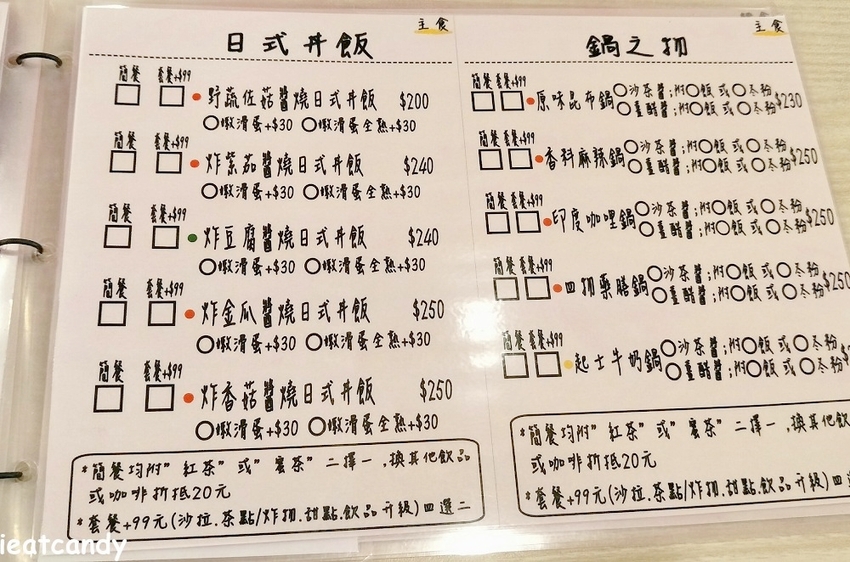 主食
日式丼飯
簡餐 套餐+$99
野蔬佐菇醬燒日式丼飯 $200
嫩滑蛋+$30 嫩滑蛋全熟+$30
簡餐 套餐+$99
炸紫茄醬燒日式丼飯 $240
嫩滑蛋+$30 嫩滑蛋全熟+$30
簡餐 套餐+$99
炸豆腐醬燒日式丼飯 $240
嫩滑蛋+$30 嫩滑蛋全熟+$30
簡餐 套餐+$99
炸金瓜醬燒日式丼飯 $250
嫩滑蛋+$30 嫩滑蛋全熟+$30
簡餐 套餐+$99
炸香菇醬燒日式丼飯 $250
嫩滑蛋+$30 嫩滑蛋全熟+$30
*簡餐均附"紅茶"或"蜜茶"二擇一,換其他飲品
或咖啡折抵20元
*套餐+99元(沙拉.茶點/炸物.甜點.飲品升級)四選二
主食
鍋之物
簡餐 套餐+$99
原味昆布鍋 沙茶醬;附飯或冬粉 $230
薑醋醬;附飯或冬粉
簡餐 套餐+$99
香料麻辣鍋 沙茶醬;附飯或冬粉 $250
薑醋醬;附飯或冬粉
簡餐 套餐+$99
印度咖哩鍋 沙茶醬;附飯或冬粉 $250
薑醋醬;附飯或冬粉
簡餐 套餐+$99
四物藥膳鍋 沙茶醬;附飯或冬粉 $250
薑醋醬;附飯或冬粉
簡餐 套餐+$99
起士牛奶鍋 沙茶醬;附飯或冬粉
薑醋醬;附飯或冬粉
*簡餐均附"紅茶"或"蜜茶"二擇一,換其他飲品
或咖啡折抵20元
*套餐+99元(沙拉.茶點/炸物.甜點.飲品升級)四選
ieatcandy